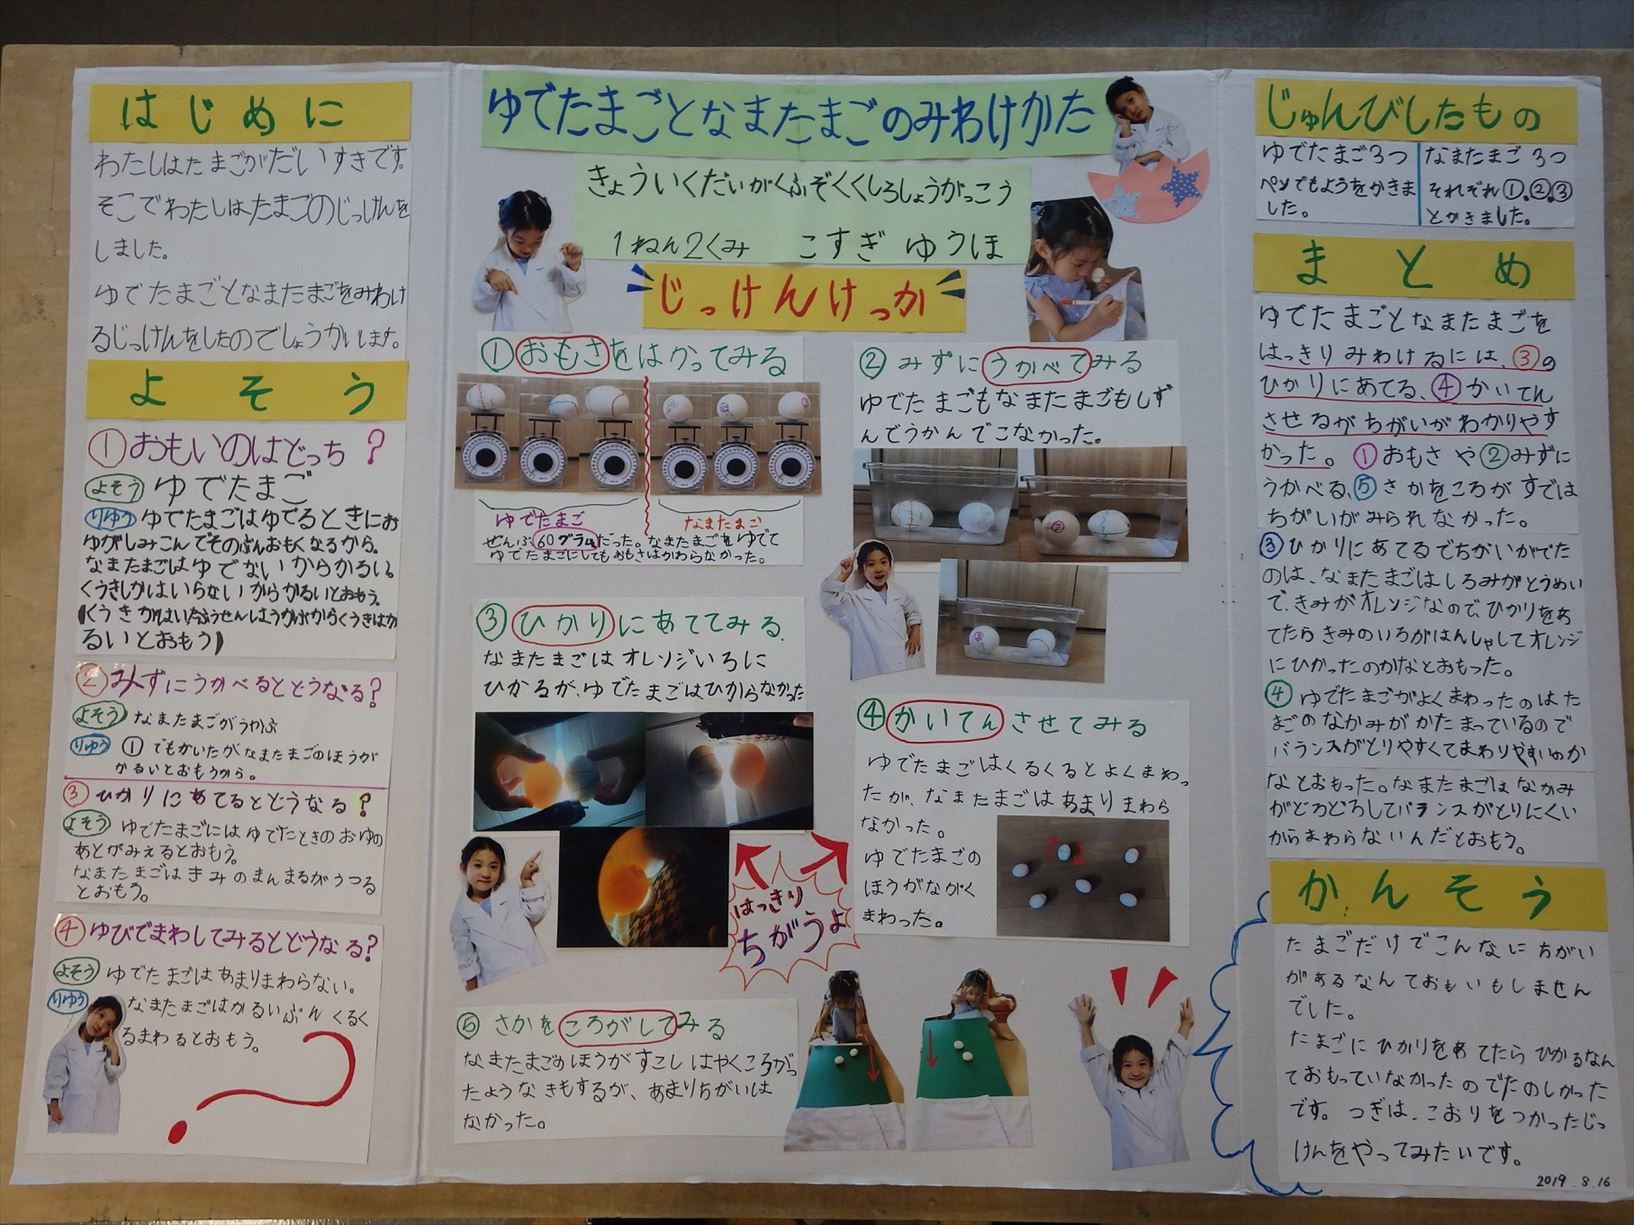 はじめに
わたしはたまごがだいすきです。
そこでわたしはたまごのじっけんを
しました。
ゆでたまごとなまたまごをみわけ
るじっけんをしたのでしょうかいします。
よそう
①おもいのはどっち？
よそう ゆでたまご
りゆう ゆでたまごはゆでるときにお
ゆがしみこんでそのぶんおもくなるから。
なまたまごはゆでないからかるい。
くうきしかはいらないからかるいとおもう。
るいとおもう)
②みずにうかべるとどうなる？
よそう なまたまごがうかぶ
りゆう ①でもかいたがなまたまごのほうが
かるいとおもうから。
③ひかりにあてるとどうなる？
よそう ゆでたまごにはゆでたときのおゆの
あとがみえるとおもう。
なまたまごはきみのまんまるがうつる
とおもう。
④ゆびでまわしてみるとどうなる？
よそう ゆでたまごはあまりまわらない。
りゆう なまたまごはかるいぶんくるく
るまわるとおもう。
ゆでたまごとなまたまごのみわけかた
きょういくだいがくふぞくくしろしょうがっこう
1ねん2くみ こすぎ ゆうほ
じっけんけっか
①おもさをはかってみる
ゆでたまご
なまたまご
ぜんぶ60グラムだった。なまたまごをゆでて
ゆでたまごにしてもおもさはかわらなかった。
②みずにうかべてみる
ゆでたまごもなまたまごもしず
んでうかんでこなかった。
③ひかりにあててみる。
なまたまごはオレンジいろに
ひかるが、ゆでたまごはひからなかった
はっきり
ちがうよ
④かいてんさせてみる
ゆでたまごはくるくるとよくまわっ
たが、なまたまごはあまりまわら
なかった。
ゆでたまごの
ほうがながく
まわった。
⑤さかをころがしてみる
なまたまごのほうがすこしはやくころがっ
たようなきもするが、あまりちがいは
なかった。
じゅんびしたもの
ゆでたまご3つ
ペンでもようをかきま
した。
なまたまご3つ
それぞれ①.②.③
とかきました。
まとめ
ゆでたまごとなまたまごを
はっきりみわけるには、③の
ひかりにあてる、④かいてん
させるがちがいがわかりやす
かった。①おもさや②みずに
うかべる、⑤さかをころがすでは
ちがいがみられなかった。
③ひかりにあてるでちがいがでた
のは、なまたまごはしろみがとうめい
で、きみがオレンジなので、ひかりをあ
てたらきみのいろがはんしゃしてオレンジ
にひかったのかなとおもった。
④ゆでたまごがよくまわったのはた
まごのなかみがかたまっているので
バランスがとりやすくてまわりやすいのか
なとおもった。なまたまごはなかみ
がどろどろしてバランスがとりにくい
からまわらないんだとおもう。
かんそう
たまごだけでこんなにちがい
があるなんておもいもしません
でした。
たまごにひかりをあてたらひかるなん
ておもっていなかったのでたのしかった
です。つぎは、こおりをつかったじっ
けんをやってみたいです。
2019.8.16